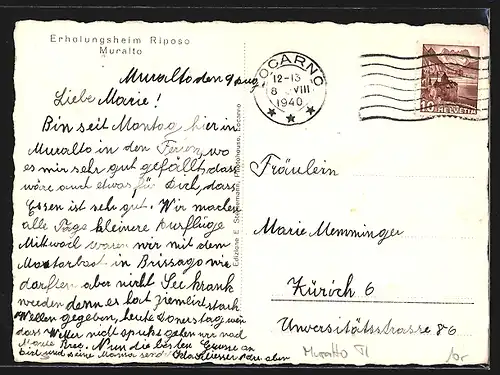 Erholungsheim Riposo
Muralto
Muralto den 9 Aug
Liebe Marie!
Bin seit Montag hier in
Muralto in den Ferien, wo
es mir sehr gut gefällt, dass
wäre auch etwas für Dich, dass
Essen ist sehr gut. Wir machen
alle Tage kleinere Ausflüge
Mittwoch waren wir mit dem
in Brissago wir
durften aber nicht See krank
werden denn es hat ziemlich stark
Wellen gegeben, heute Donerstag wen
dass Wetter nicht gehen wir nach
Monte Bre. Nun die besten Grüsse an
Dich und deine Mama
Edizione E. Locarno
LOCARNO
12-13
8. VIII
1940
10 HELVETIA
Fräulein
Marie Memminger
Zürich 6
Universitätsstrasse 86
Muralto TI